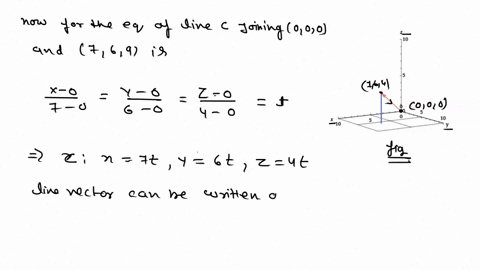 now for the eq of line C joining (0,0,0)
and (7,6,9) is
x-0/7-0 = y-0/6-0 = z-0/4-0 = t
⇒ x; x = 7t, y = 6t, z = 4t
line vector can be written a
z
10
5
(7,6,4)
(0,0,0)
0
x 10 5 0 5 10 y
fig